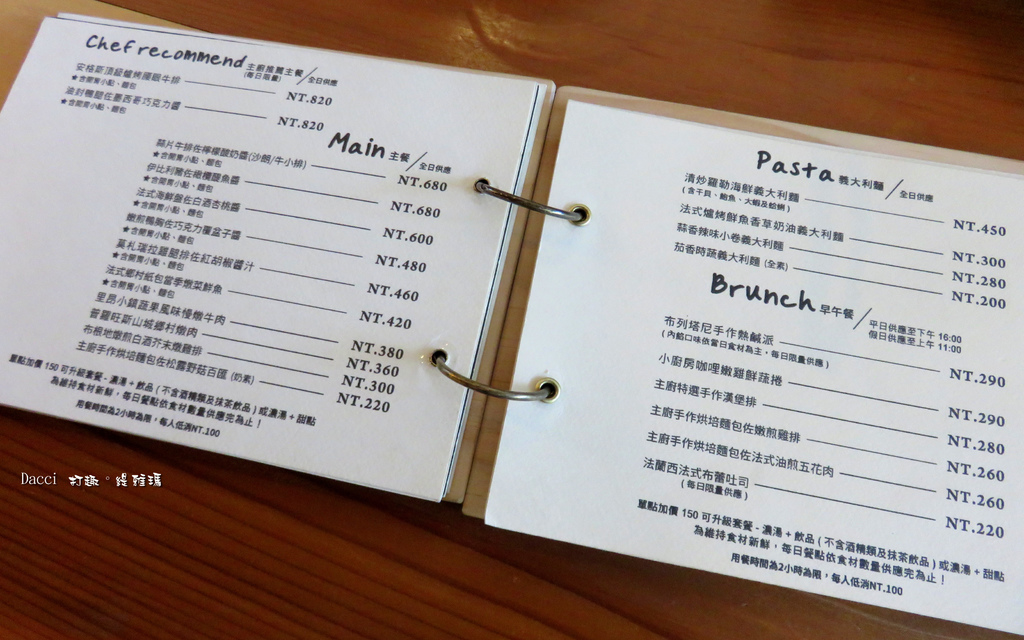 Chef recommend 主廚推薦主餐/全日供應
(每日限量)
安格斯頂級爐烤腰眼牛排 NT.820
★含開胃小點、麵包
油封鴨腿佐墨西哥巧克力醬 NT.820
★含開胃小點、麵包
Main 主餐/全日供應
蒜片牛排佐檸檬酸奶醬(沙朗/牛小排) NT.680
★含開胃小點、麵包
伊比利豬佐橄欖鯷魚醬 NT.680
★含開胃小點、麵包
法式海鮮盤佐白酒杏桃醬 NT.600
★含開胃小點、麵包
嫩煎鴨胸佐巧克力覆盆子醬 NT.480
★含開胃小點、麵包
莫札瑞拉雞腿排佐紅胡椒醬汁 NT.460
★含開胃小點、麵包
法式鄉村紙包當季燉菜鮮魚 NT.420
★含開胃小點、麵包
里昂小鎮蔬果風味慢燉牛肉 NT.380
普羅旺斯山城鄉村燉肉 NT.360
布根地嫩煎白酒芥末燉雞排 NT.300
主廚手作烘培麵包佐松露野菇百匯 (奶素) NT.220
單點加價 150 可升級套餐 - 濃湯 + 飲品 ( 不含酒精類及抹茶飲品 ) 或濃湯 + 甜點
為維持食材新鮮，每日餐點依食材數量供應完為止！
用餐時間為2小時為限，每人低消NT.100
Pasta 義大利麵/全日供應
清炒羅勒海鮮義大利麵 NT.450
( 含干貝、鮑魚、大蝦及蛤蜊 )
法式爐烤鮮魚香草奶油義大利麵 NT.300
蒜香辣味小卷義大利麵 NT.280
茄香時蔬義大利麵 (全素) NT.200
Brunch 早午餐/平日供應至下午 16:00
假日供應至上午 11:00
布列塔尼手作熱鹹派 NT.290
( 內餡口味依當日食材為主，每日限量供應 )
小廚房咖哩嫩雞鮮蔬捲 NT.290
主廚特選手作漢堡排 NT.280
主廚手作烘培麵包佐嫩煎雞排 NT.260
主廚手作烘培麵包佐法式油煎五花肉 NT.260
法蘭西法式布蕾吐司 NT.220
( 每日限量供應 )
單點加價 150 可升級套餐 - 濃湯 + 飲品 ( 不含酒精類及抹茶飲品 ) 或濃湯 + 甜點
為維持食材新鮮，每日餐點依食材數量供應完為止！
用餐時間為2小時為限，每人低消NT.100
Dacci 打趣。緹雅瑪